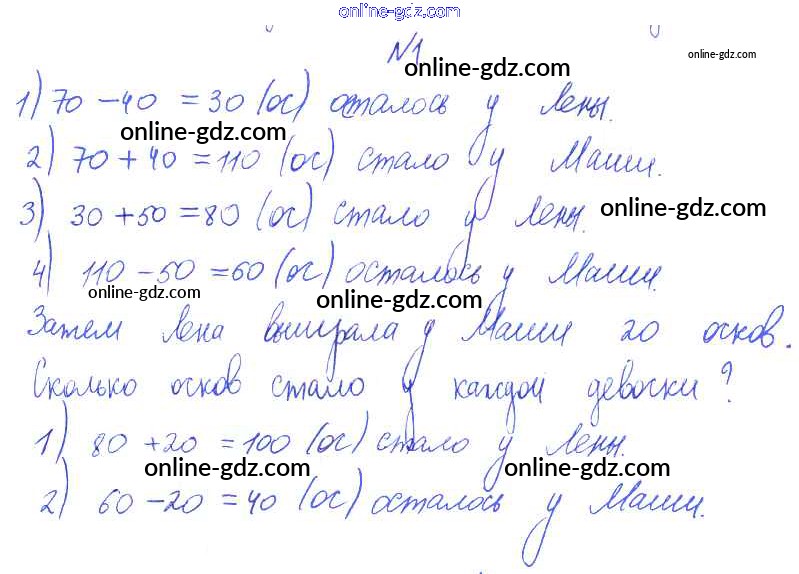 online-gdz.com
№1
online-gdz.com
online-gdz.com
1) 70 - 40 = 30 (ос) осталось у Лены.
online-gdz.com
2) 70 + 40 = 110 (ос) стало у Маши.
3) 30 + 50 = 80 (ос) стало у Лены.
online-gdz.com
4) 110 - 50 = 60 (ос) осталось у Маши.
online-gdz.com
online-gdz.com
Затем Лена выиграла у Маши 20 осков.
Сколько осков стало у каждой девоски?
1) 80 + 20 = 100 (ос) стало у Лены.
online-gdz.com
online-gdz.com
2) 60 - 20 = 40 (ос) осталось у Маши.